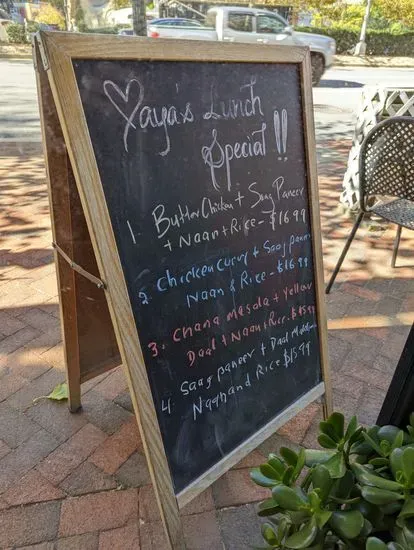 Yaya's Lunch
Special !!
1. Butter Chicken + Saag Paneer
+ Naan + Rice - $16.99
2. Chicken Curry + Saag Paneer
Naan & Rice - $16.99
3. Chana Masala + Yellow
Daal + Naan + Rice. $15.99
4. Saag paneer + Daal
Naan and Rice $15.99